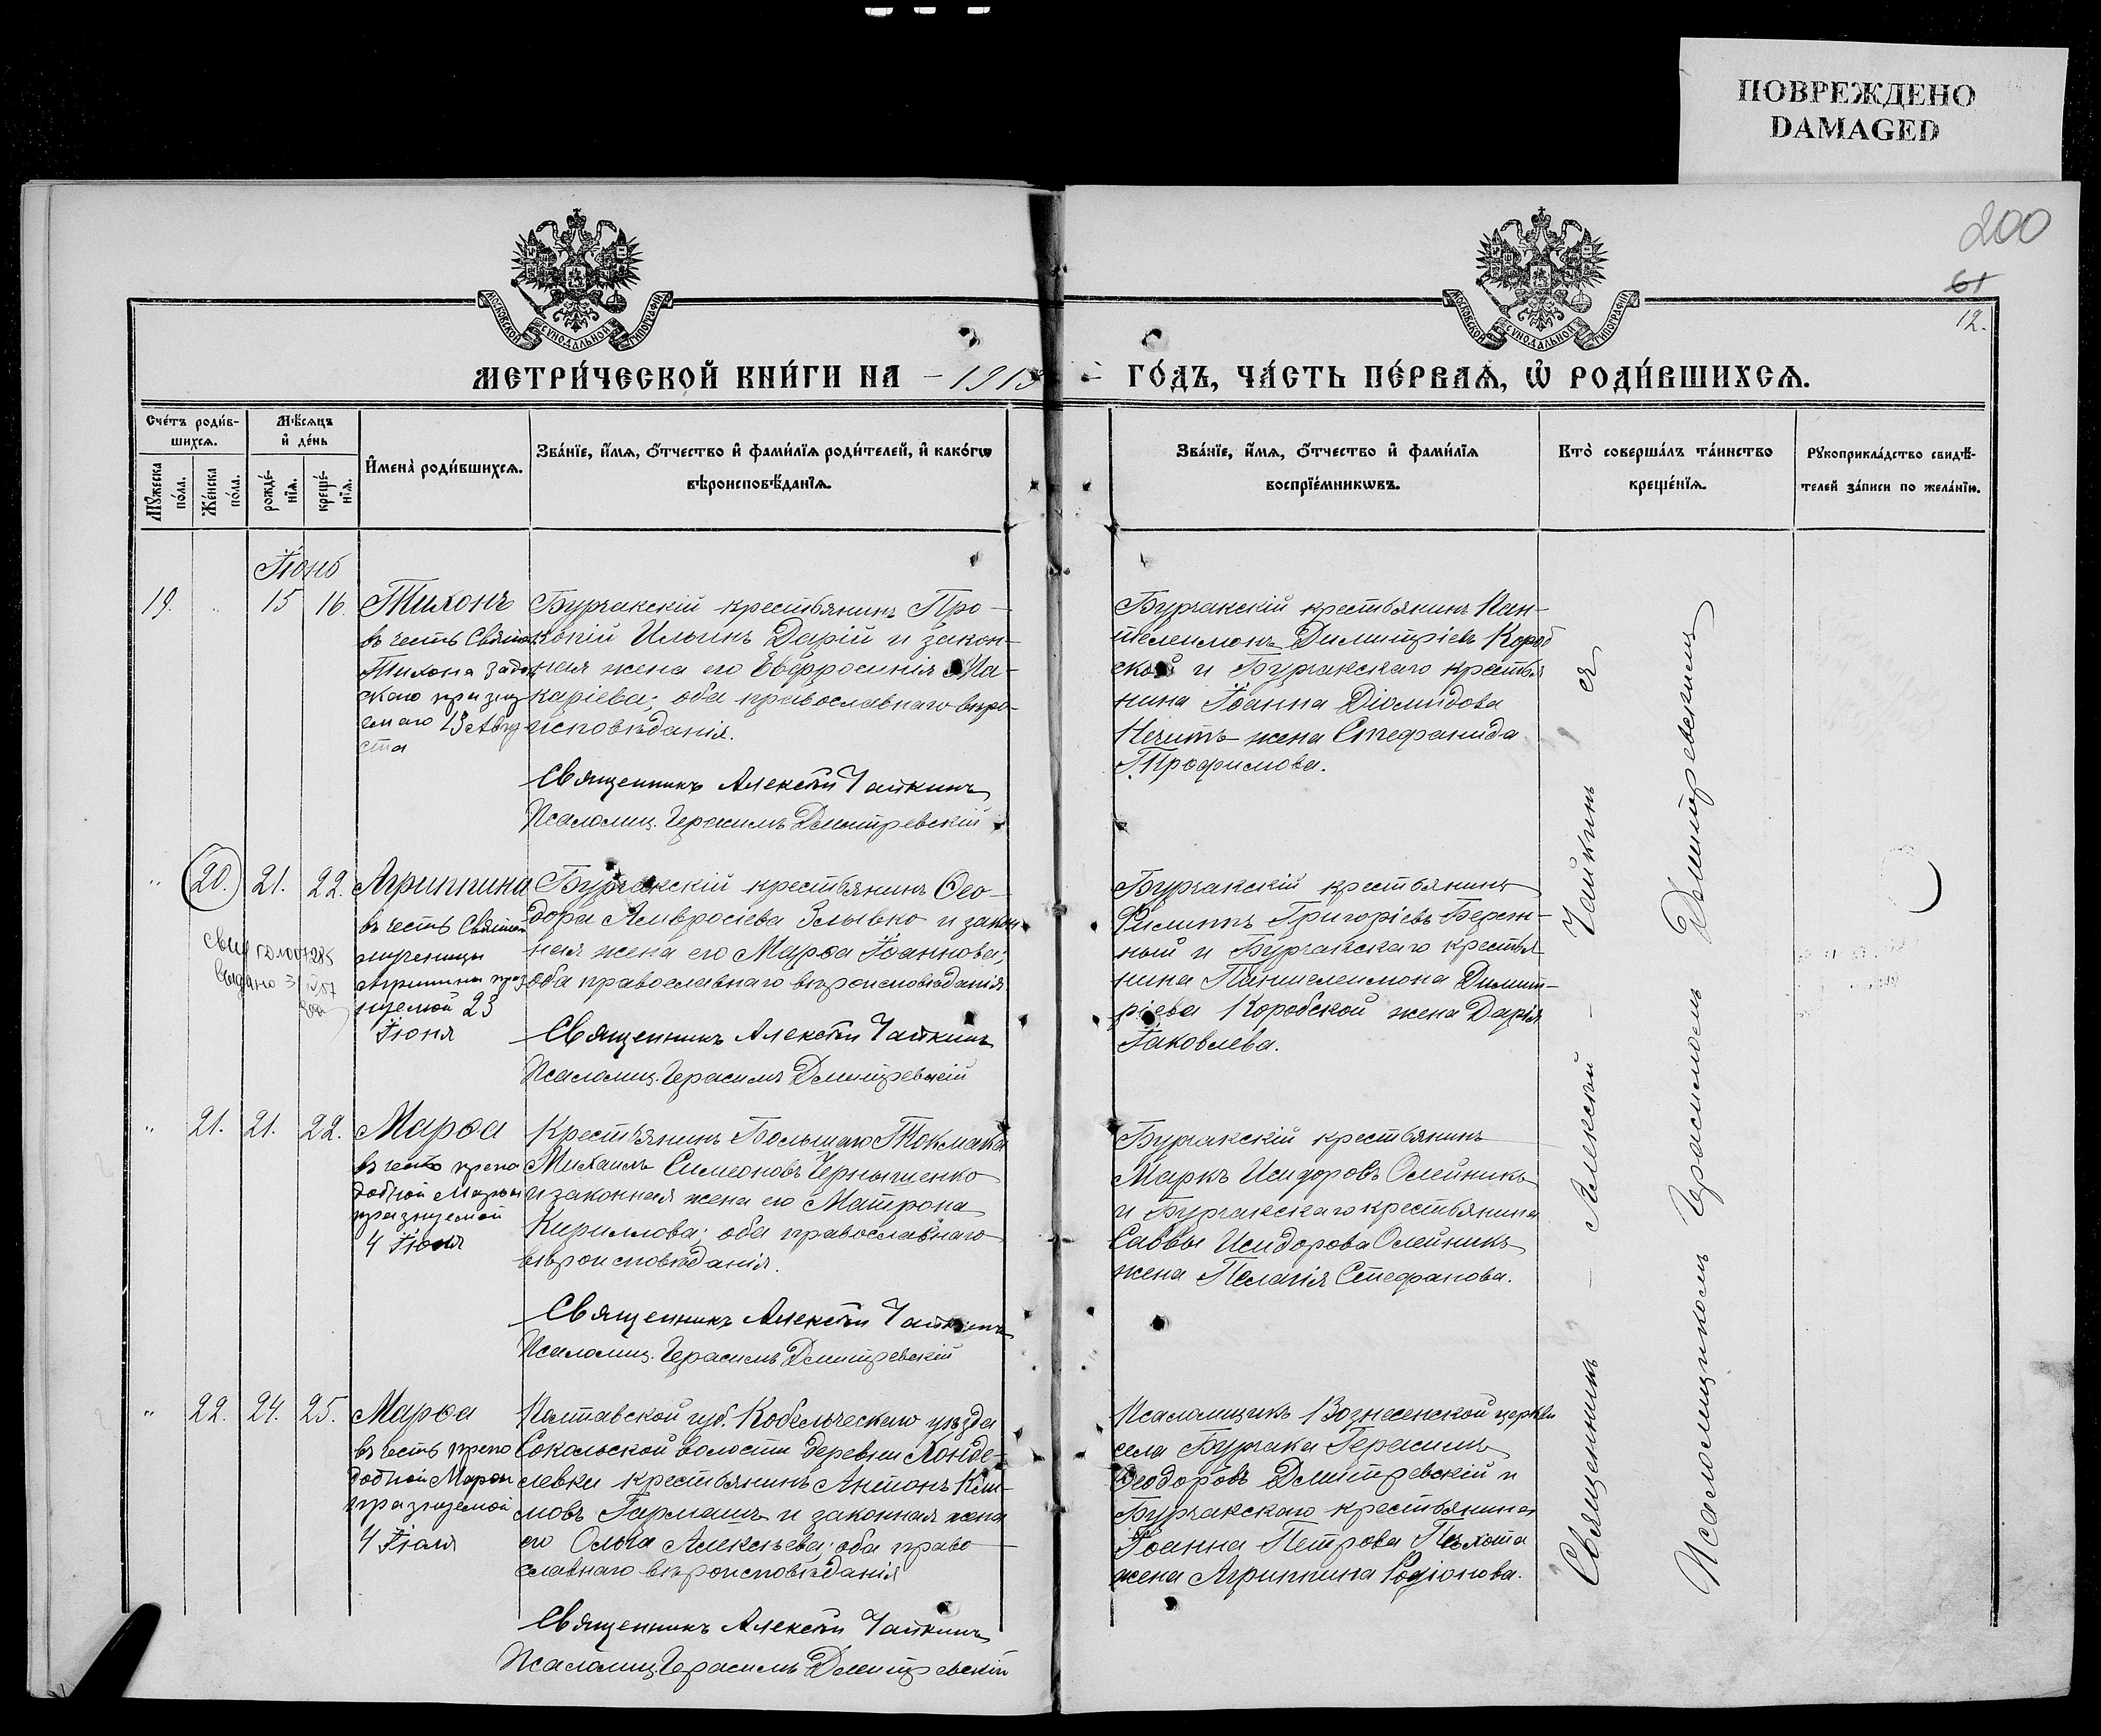 ПОВРЕЖДЕНО
DAMAGED
200
61
12.
МОСКОВСКОЙ СѴНОДАЛЬНОЙ ТИПОГРАФІИ
МОСКОВСКОЙ СѴНОДАЛЬНОЙ ТИПОГРАФІИ
МЕТРИ́ЧЕСКОЙ КНИ́ГИ НА - 1913 - ГО́ДЪ, ЧА́СТЬ ПЕ́РВАѦ, Ѡ҆ РОДИ́ВШИХСѦ.
Сче́тъ роди́в-
шихсѧ.
Мѣ́сѧцъ
и҆ де́нь
Мꙋ́жеска
по́ла.
Же́нска
по́ла.
рожде́-
нїѧ.
креще́-
нїѧ.
И҆мена̀ роди́вшихсѧ.
Зва́нїе, и҆́мѧ, ѻ҆́тчество и҆ фами́лїѧ роди́телей, и҆ како́гѡ
вѣроисповѣ́данїѧ.
Зва́нїе, и҆́мѧ, ѻ҆́тчество и҆ фами́лїѧ
воспрїе́мникѡвъ.
Кто̀ соверша́лъ та́инство
креще́нїѧ.
Рꙋкоприкла́дство свидѣ́-
телей за́писи по жела́нїю.
Іюнь
19. " 15 16. Тихонъ
въ честь Свят
Тихона Задон
скаго праздну
емаго 13 Авгу
ста
Бурчакскій крестьянинъ Про-
копій Ильинъ Дарій и закон-
ная жена его Евфросинія Ма-
каріева; оба православнаго вѣро-
исповѣданія.
Священникъ Алексѣй Чайкинъ
Псаломщ. Герасимъ Дмитревскій
Бурчакскій крестьянинъ Пан-
телеимонъ Димитріевъ Короб
ской и Бурчакскаго крестья
нина Іоанна Діомидова
Нечитъ жена Стефанида
Трофимова.
" 20. 21. 22. Агриппина
въ честь Святой
мученицы
Агриппины праз
нуемой 23
Іюня
выдано
Бурчакскій крестьянинъ Ѳео-
дора Амвросіева Зливко и закон
ная жена его Марѳа Іоаннова;
оба православнаго вѣроисповѣданія
Священникъ Алексѣй Чайкинъ
Псаломщ. Герасимъ Дмитревскій
Бурчакскій крестьянинъ
Филиппъ Григоріевъ Береж-
ный и Бурчакскаго крестья
нина Пантелеимона Димит-
ріева Коробской жена Дарія
Іаковлева.
" 21. 21. 22. Марѳа
въ честь препо
добной Марѳы
празнуемой
4 Іюля
Крестьянинъ Большаго Токмака
Михаилъ Симеоновъ Чернышенко
и законная жена его Матрона
Кириллова; оба православнаго
вѣроисповѣданія.
Священникъ Алексѣй Чайкинъ
Псаломщ. Герасимъ Дмитревскій
Бурчакскій крестьянинъ
Маркъ Исидоровъ Олейникъ
и Бурчакскаго крестьянина
Саввы Исидорова Олейникъ
жена Пелагія Стефанова.
" 22. 24. 25. Марѳа
въ честь препо
добной Марѳы
празнуемой
4 Іюля
Полтавской губ. Кобельческаго уѣзда
Сокольской волости деревни Хонде-
левки крестьянинъ Антонъ Кли-
мовъ Гармашъ и законная жена
его Ольга Алексѣева; оба право
славнаго вѣроисповѣданія
Священникъ Алексѣй Чайкинъ
Псаломщ. Герасимъ Дмитревскій
Псаломщикъ Вознесенской церкви
села Бурчака Герасимъ
Ѳеодоровъ Дмитревскій и
Бурчакскаго крестьянина
Іоанна Петрова Пѣхота
жена Агриппина Родіонова.
Священникъ - Алексѣй - Чайкинъ
Псаломщикомъ Герасимомъ Дмитревскимъ